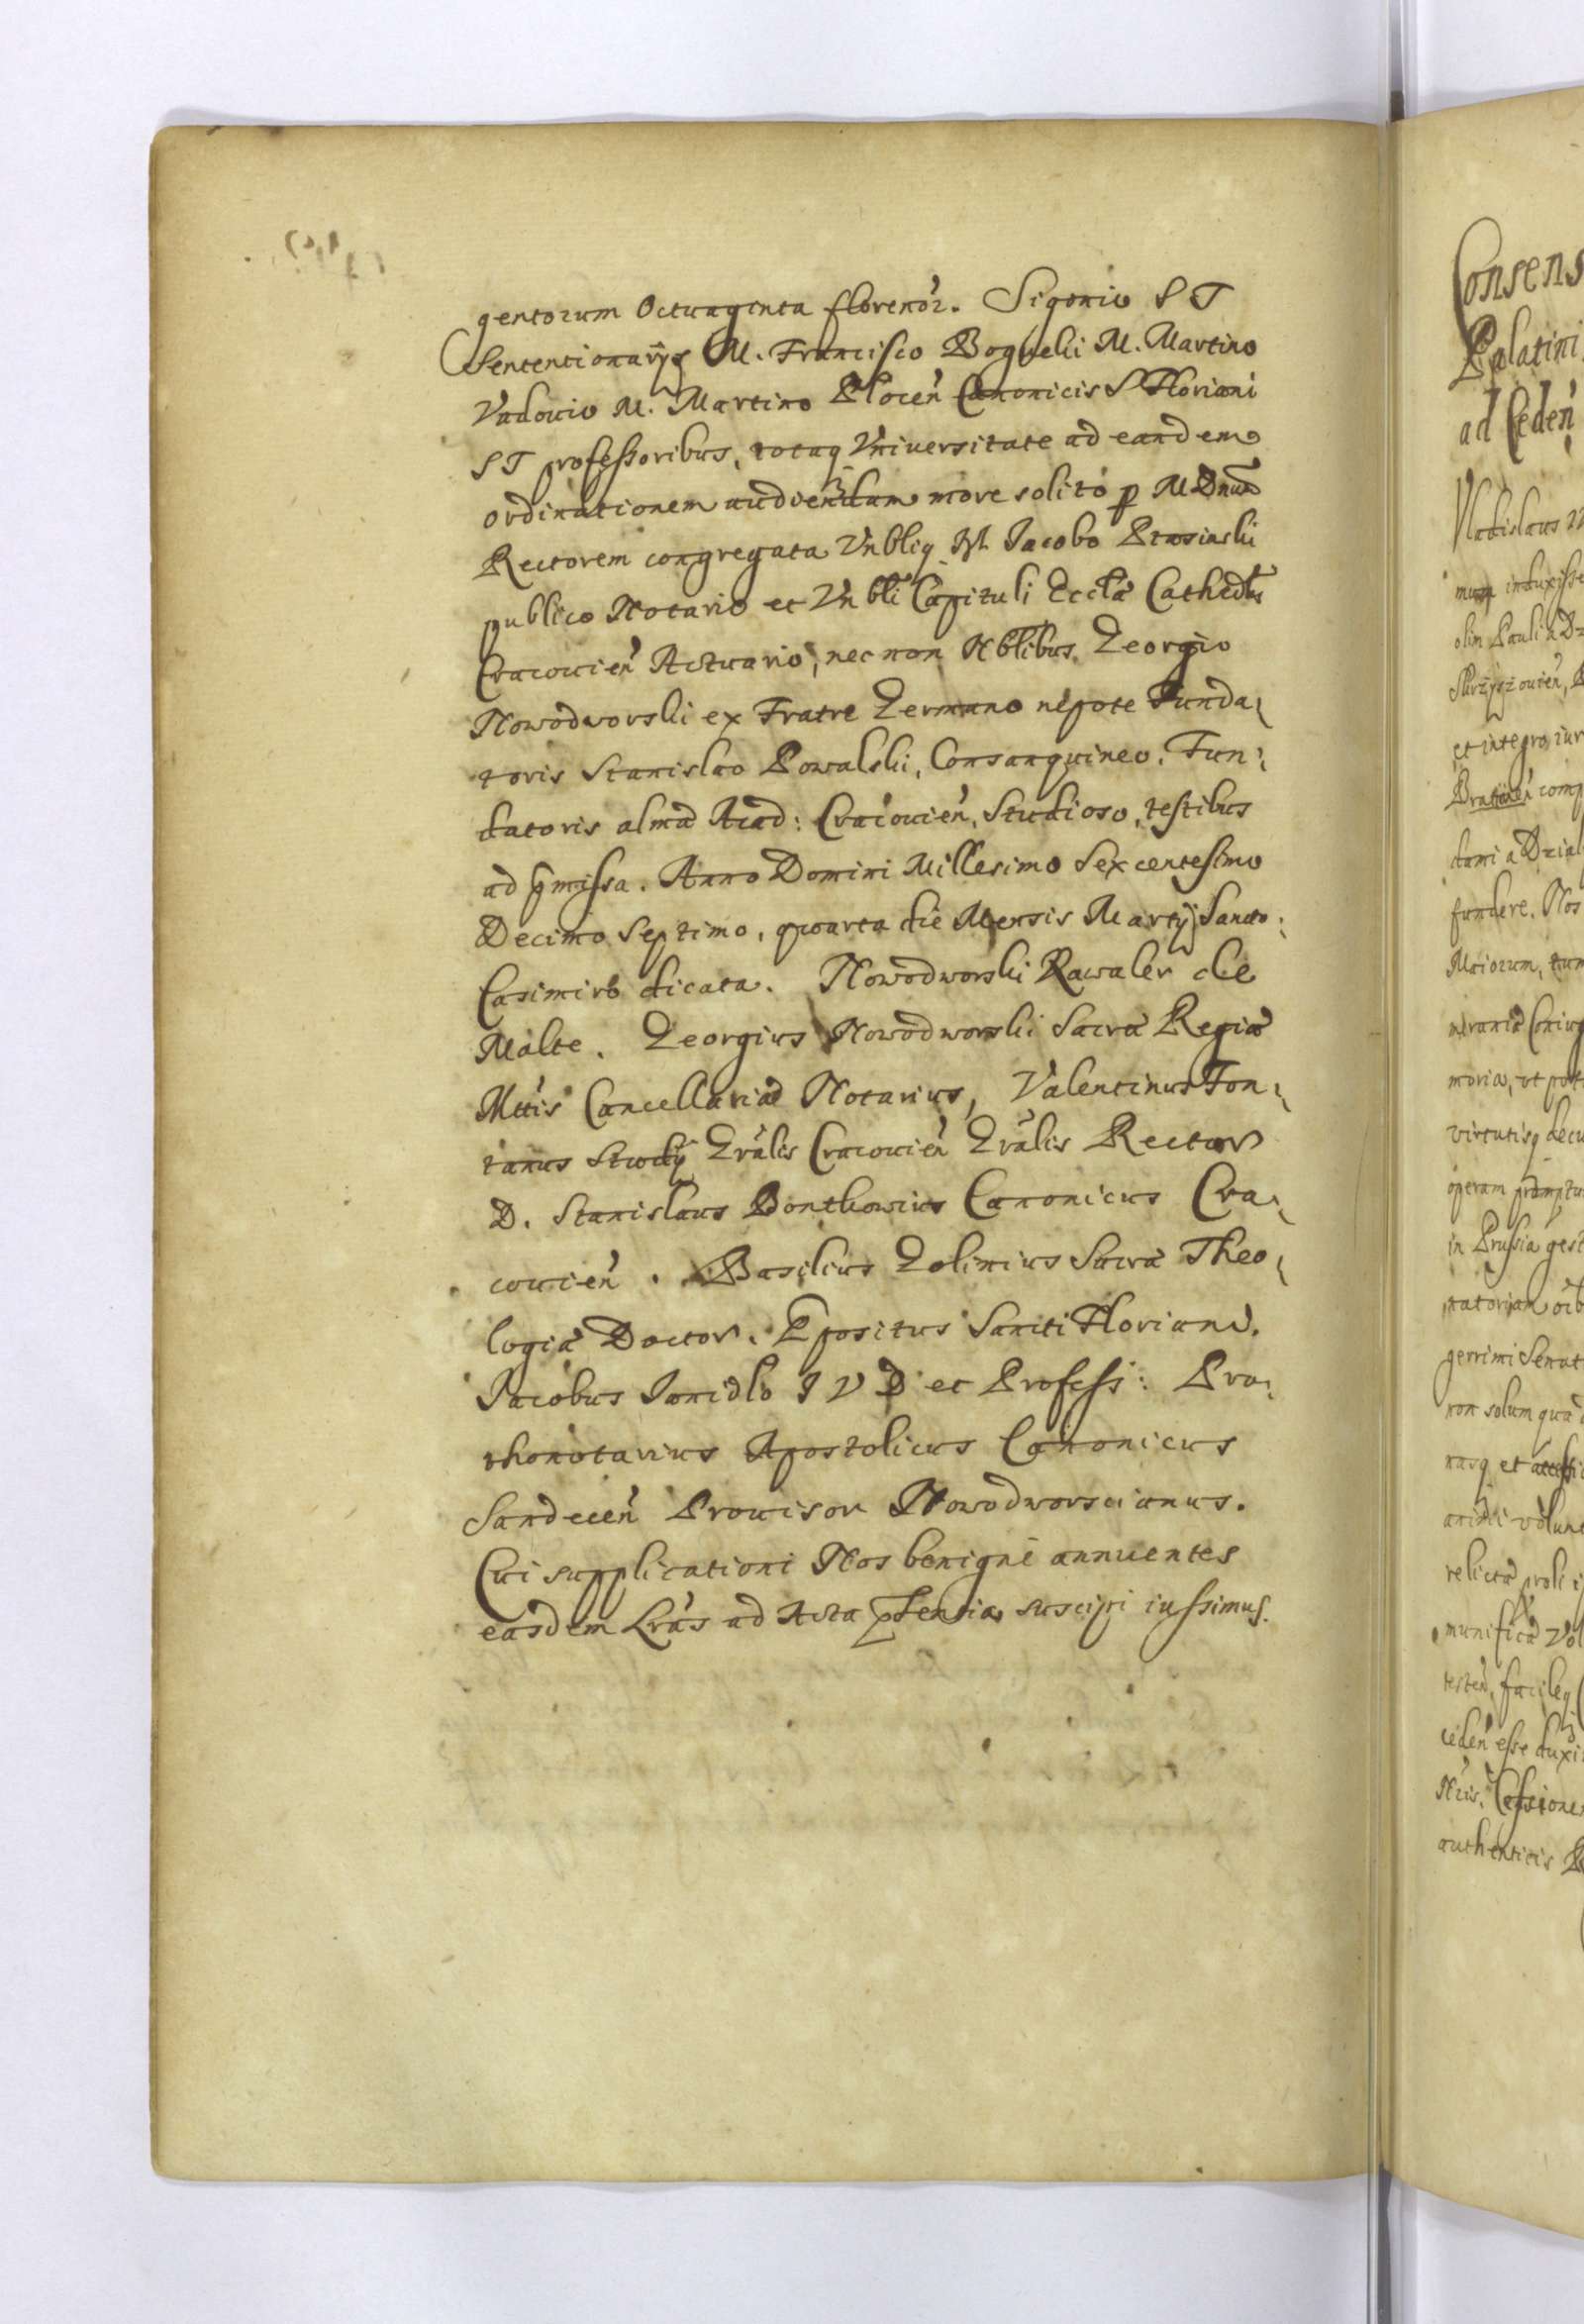 gentorum Octuaginta florenor. Sigonio S T
Sententionarijs M. Francisco Roguski M. Martino
Vadouio M. Martino Plocen Canonicis S Floriani
S T professoribus, totaq Vniuersitate ad eandem
ordinationem audiendam more solito p M Dnum
Rectorem congregata Vnbliq M Jacobo
publico Notario et Vnbli Capituli Eccla Cathedlis
Cracouien Actuario, nec non Nblibus Georgio
Nowodworski ex Fratre Germano nepote Funda
toris Stanislao Powalski, Consanguineo, Fun
datoris alma Acad: Cracouien, Studioso, testibus
ad pmissa. Anno Domini Millesimo Sexcentesimo
Decimo Septimo, quarta die Mensis Martij Sancto
Casimiro dicata. Nowodworski Kawaler de
Malte. Georgius Nowodworski Sacra Regia
Mttis Cancellaria Notarius, Valentinus Fon
tanus Studij Gralis Cracouien Gralis Rector
D. Stanislaus Bontkowius Canonicus Cra
couien. Basilius Golinius Sacra Theo
logia Doctor. Ppositus Sancti Floriani.
Jacobus Janidlo I V D et Profess: Pro
thonotarius Apostolicus Canonicus
Sandecen Prouisor Nowodworscianus.
Cui supplicationi Nos benigne annuentes
easdem Lras ad Acta pntia suscipi iussimus.
Consens
Palatini
ad Ceden
Vladislaus
induxisse
olim Pauli a
et integro iur
comp
dami a Dzial
fundere. Nos
Maiorum, tum
moria, ut
virtutisq decu
operam
in Prussia gest
natoriam
gerrimi Senat
non solum qua
nasq et
animi volun
relicta proli
munifica vol
facileq
ceden esse duxi
authenticis